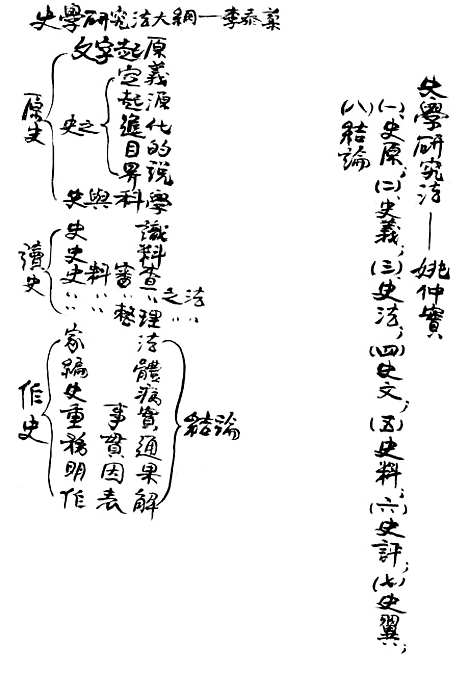 史學研究法大綱—李泰棻
原史
文字起原
史之
定義
起源
進化
目的
界說
史與科學
讀史
史識
史料
史料審查之法
〃〃整理〃〃
作史
家法
編體
史病
重事實
務貫通
明因果
作表解
結論
史學研究法——姚仲實
(一)史原;(二)史義;(三)史法;(四)史文;(五)史料;(六)史評;(七)史翼;
(八)結論